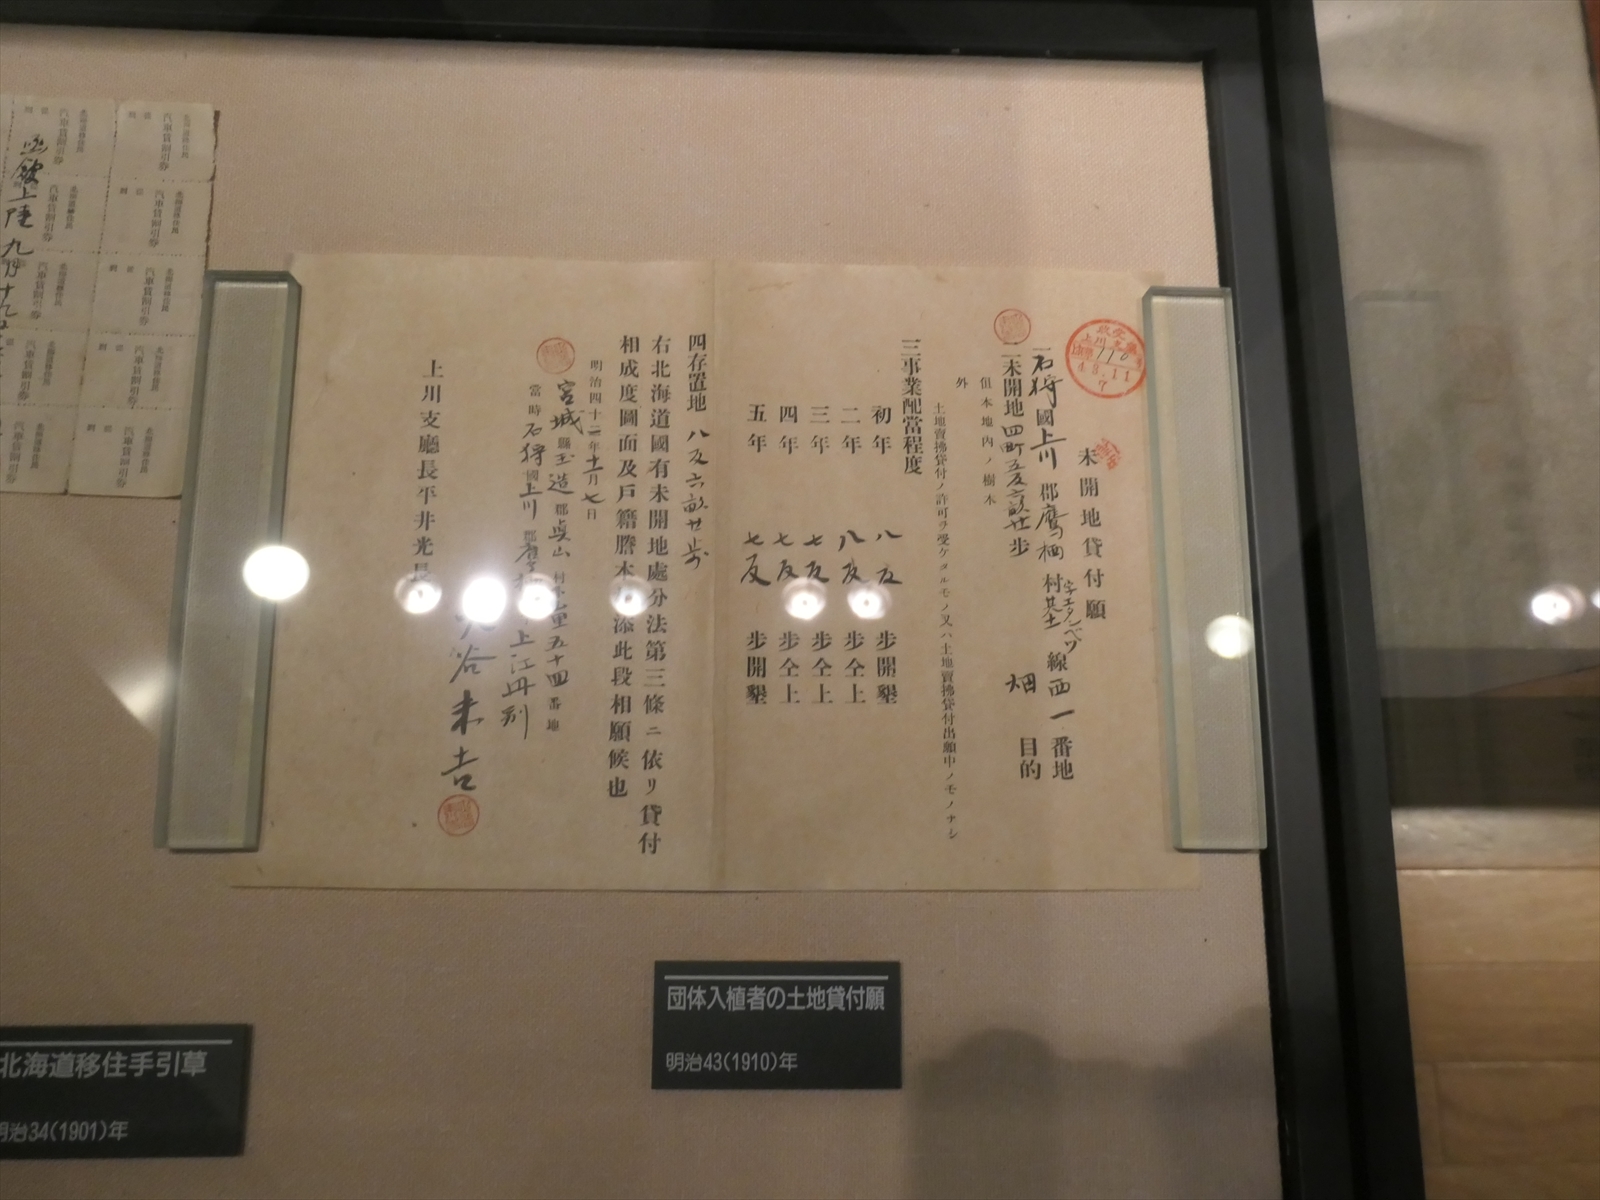 未開地貸付願
一石狩國上川郡鷹栖村字エタンベツ基線西一番地
一未開地四町五反六畝廿歩 畑目的
但本地内ノ樹木
外
土地賣拂貸付ノ許可ヲ受ケタルモノ又ハ土地賣拂貸付出願中ノモノナシ
三事業配當程度
初年 八反 歩開墾
二年 八反 歩仝上
三年 七反 歩仝上
四年 七反 歩仝上
五年 七反 歩開墾
四存置地 八反六畝廿歩
右北海道國有未開地處分法第三條ニ依リ貸付
相成度圖面及戸籍謄本 添此段相願候也
明治四十二年十一月七日
宮城縣玉造郡眞山村 五十四番地
當時石狩國上川郡 上江丹別
谷末吉
上川支廳長平井光長
団体入植者の土地貸付願
明治43(1910)年
北海道移住手引草
明治34(1901)年
函館上陸九月十九
北海道移住民
汽車賃割引券